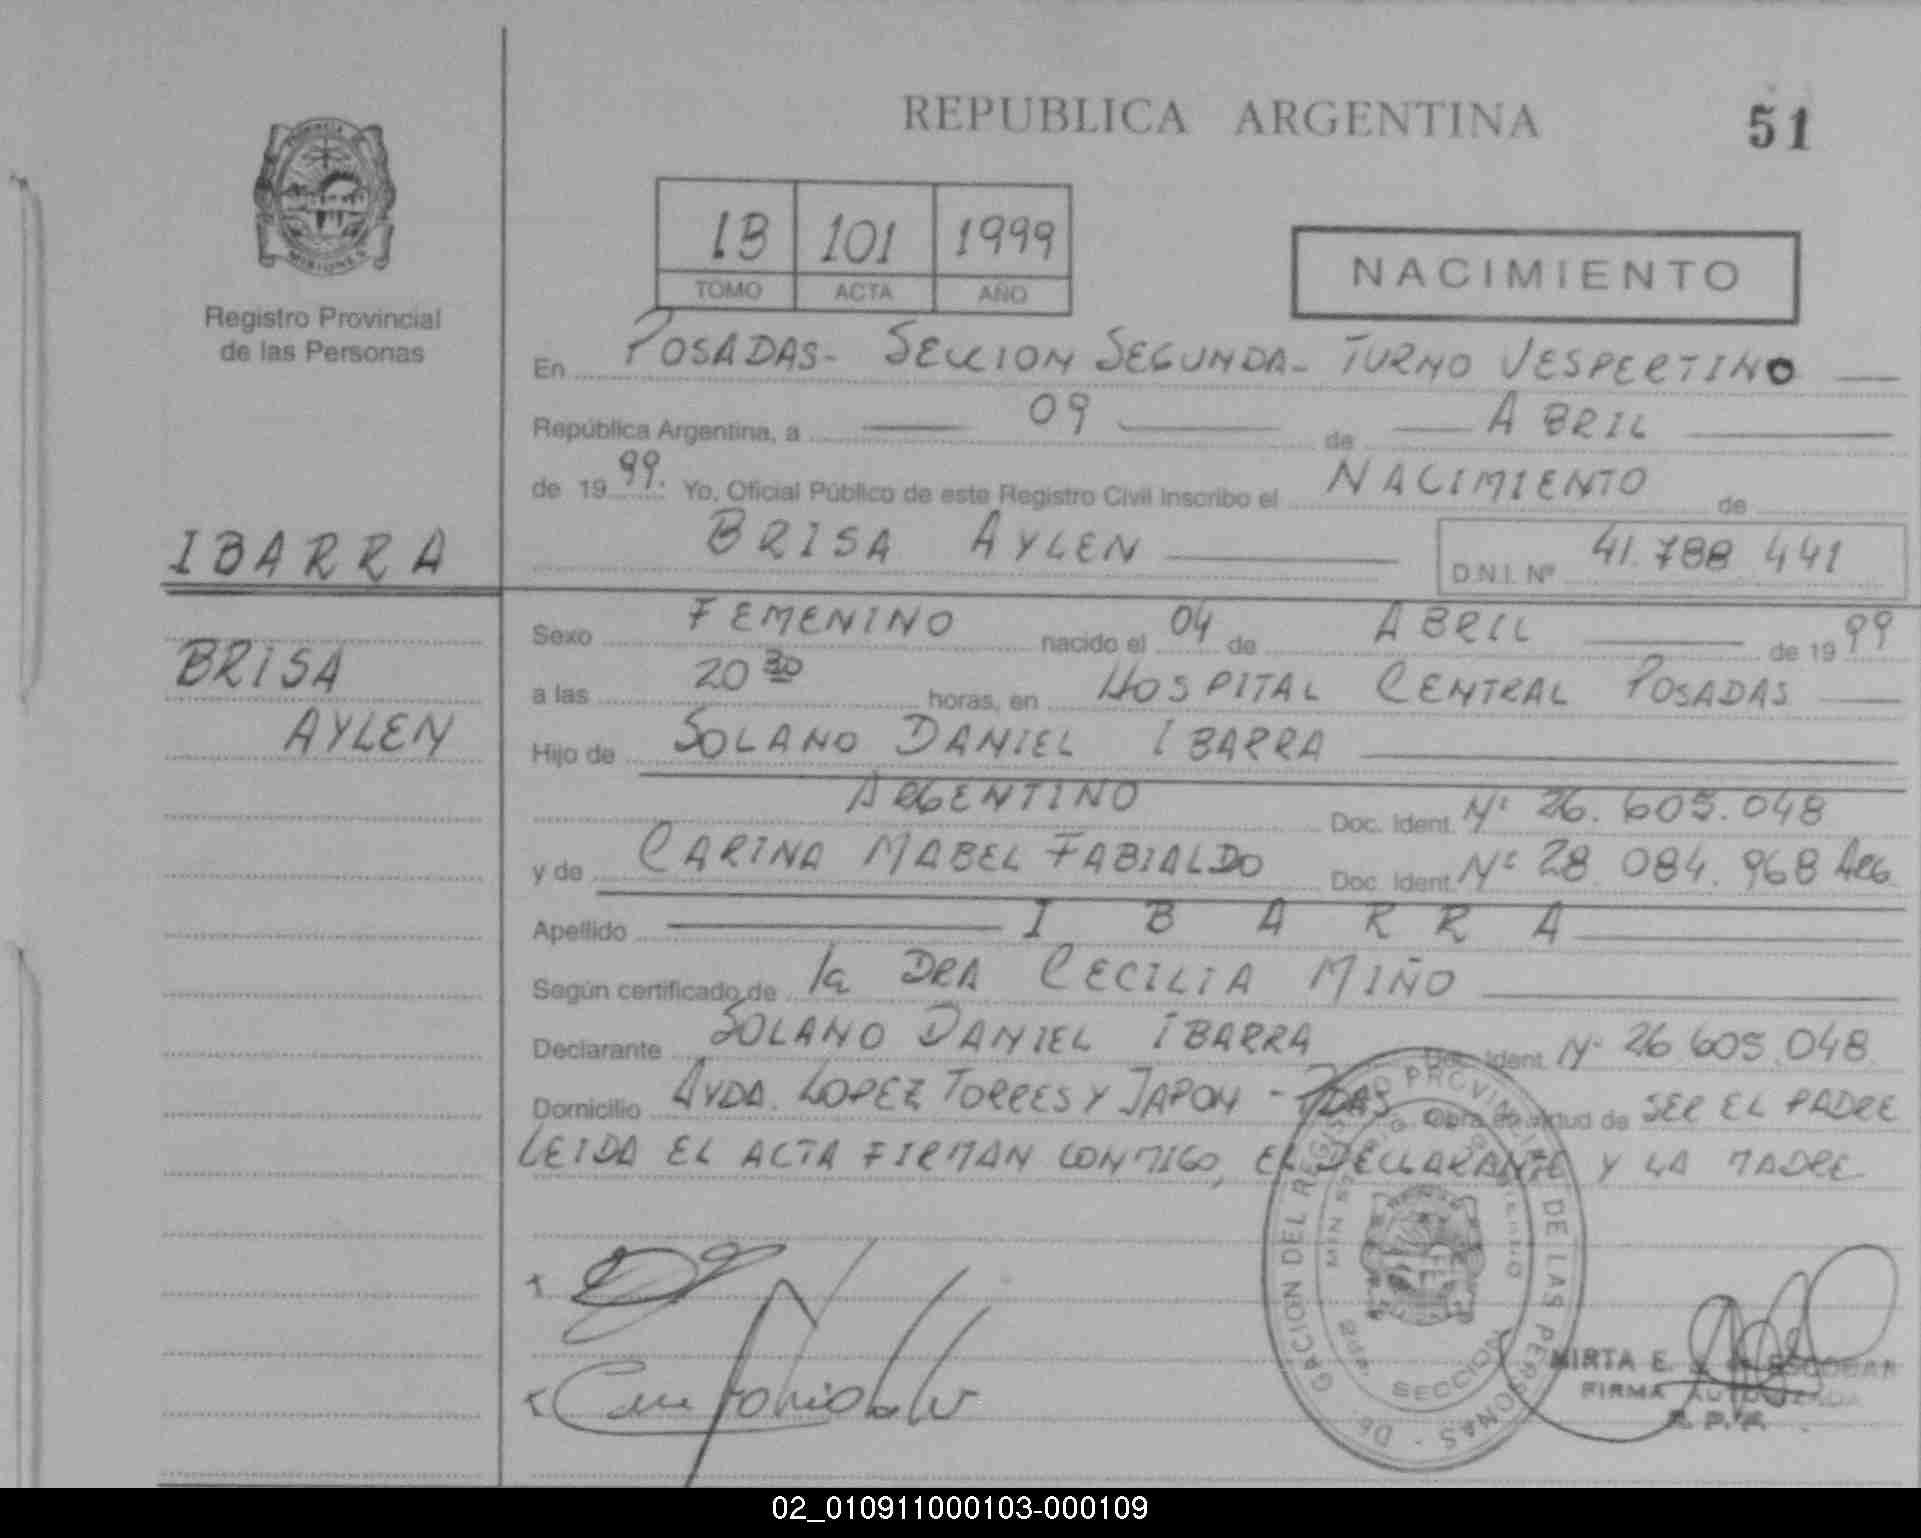 REPUBLICA ARGENTINA
51
PROVINCIA
MISIONES
Registro Provincial
de las Personas
1B 101 1999
TOMO ACTA AÑO
NACIMIENTO
En POSADAS- SECCION SEGUNDA- TURNO VESPERTINO
República Argentina, a 09 de ABRIL
de 1999. Yo, Oficial Público de este Registro Civil inscribo el NACIMIENTO de
BRISA AYLEN D.N.I. Nº 41.788 441
IBARRA
BRISA
AYLEN
Sexo FEMENINO nacido el 04 de ABRIL de 1999
a las 20 30 horas, en HOSPITAL CENTRAL POSADAS
Hijo de SOLANO DANIEL IBARRA
ARGENTINO Doc. Ident. Nº 26.605.048
y de CARINA MABEL FABIALDO Doc. Ident. Nº 28.084.968 ARG
Apellido I B A R R A
Según certificado de la DRA CECILIA MIÑO
Declarante SOLANO DANIEL IBARRA Doc. Ident. Nº 26.605.048
Domicilio AVDA. LOPEZ TORRES Y JAPON - PDAS Obra en virtud de SER EL PADRE
LEIDA EL ACTA FIRMAN CONMIGO, EL DECLARANTE Y LA MADRE
DELEGACION DEL REGISTRO PROVINCIAL DE LAS PERSONAS
SECCION
MIRTA E. ESCOBAR
FIRMA AUTORIZADA
R. P. P.
02_010911000103-000109